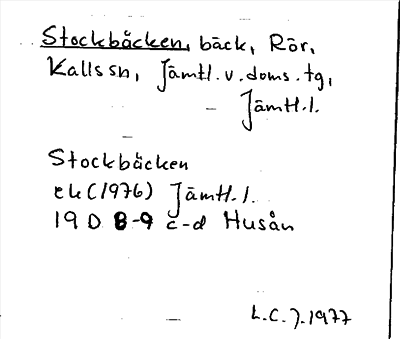 Stockbäcken, bäck, Rör,
Kalls sn, Jämtl. v. doms. tg,
Jämtl. l.
Stockbäcken
ek (1976) Jämtl. l.
19 D 8-9 c-d Husån
L.C.J. 1977